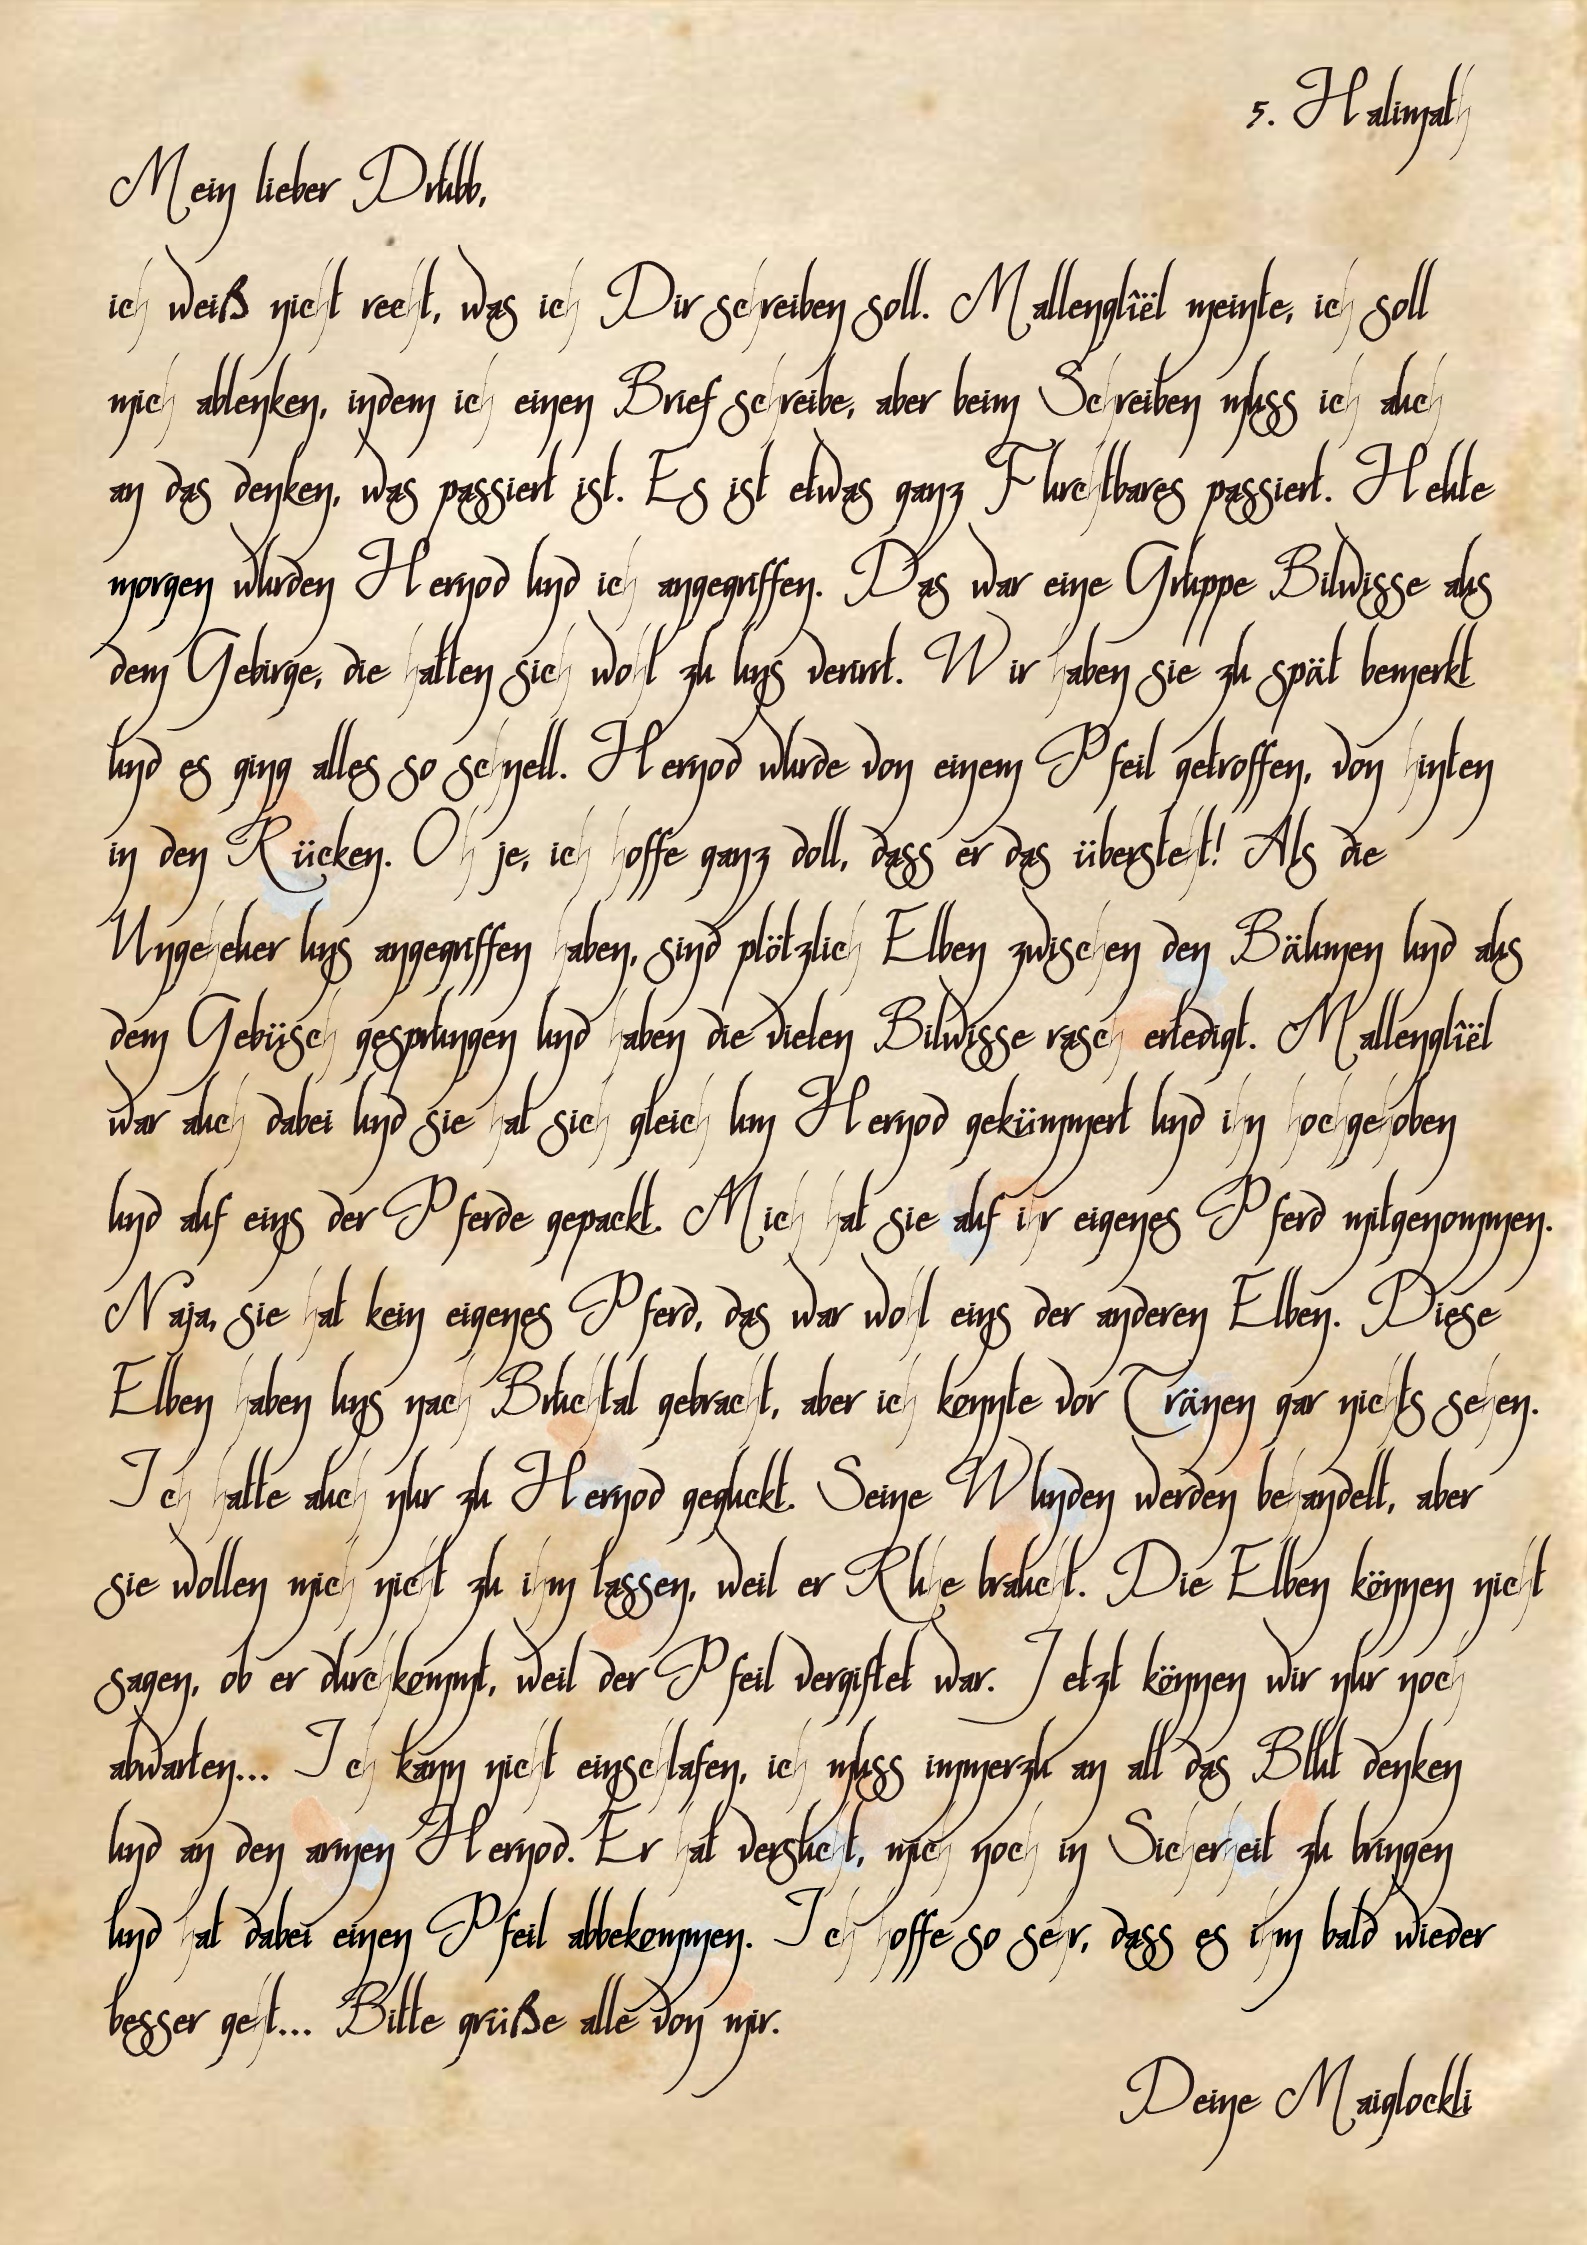 5. Halimath
Mein lieber Drubb,
ich weiß nicht recht, was ich Dir schreiben soll. Mallenglîël meinte, ich soll
mich ablenken, indem ich einen Brief schreibe, aber beim Schreiben muss ich auch
an das denken, was passiert ist. Es ist etwas ganz Furchtbares passiert. Heute
morgen wurden Hernod und ich angegriffen. Das war eine Gruppe Bilwisse aus
dem Gebirge, die hatten sich wohl zu uns verirrt. Wir haben sie zu spät bemerkt
und es ging alles so schnell. Hernod wurde von einem Pfeil getroffen, von hinten
in den Rücken. Oh je, ich hoffe ganz doll, dass er das übersteht! Als die
Ungeheuer uns angegriffen haben, sind plötzlich Elben zwischen den Bäumen und aus
dem Gebüsch gesprungen und haben die vielen Bilwisse rasch erledigt. Mallenglîël
war auch dabei und sie hat sich gleich um Hernod gekümmert und ihn hochgehoben
und auf eins der Pferde gepackt. Mich hat sie auf ihr eigenes Pferd mitgenommen.
Naja, sie hat kein eigenes Pferd, das war wohl eins der anderen Elben. Diese
Elben haben uns nach Bruchtal gebracht, aber ich konnte vor Tränen gar nichts sehen.
Ich hatte auch nur zu Hernod geguckt. Seine Wunden werden behandelt, aber
sie wollen mich nicht zu ihm lassen, weil er Ruhe braucht. Die Elben können nicht
sagen, ob er durchkommt, weil der Pfeil vergiftet war. Jetzt können wir nur noch
abwarten... Ich kann nicht einschlafen, ich muss immerzu an all das Blut denken
und an den armen Hernod. Er hat versucht, mich noch in Sicherheit zu bringen
und hat dabei einen Pfeil abbekommen. Ich hoffe so sehr, dass es ihm bald wieder
besser geht... Bitte grüße alle von mir.
Deine Maiglockli